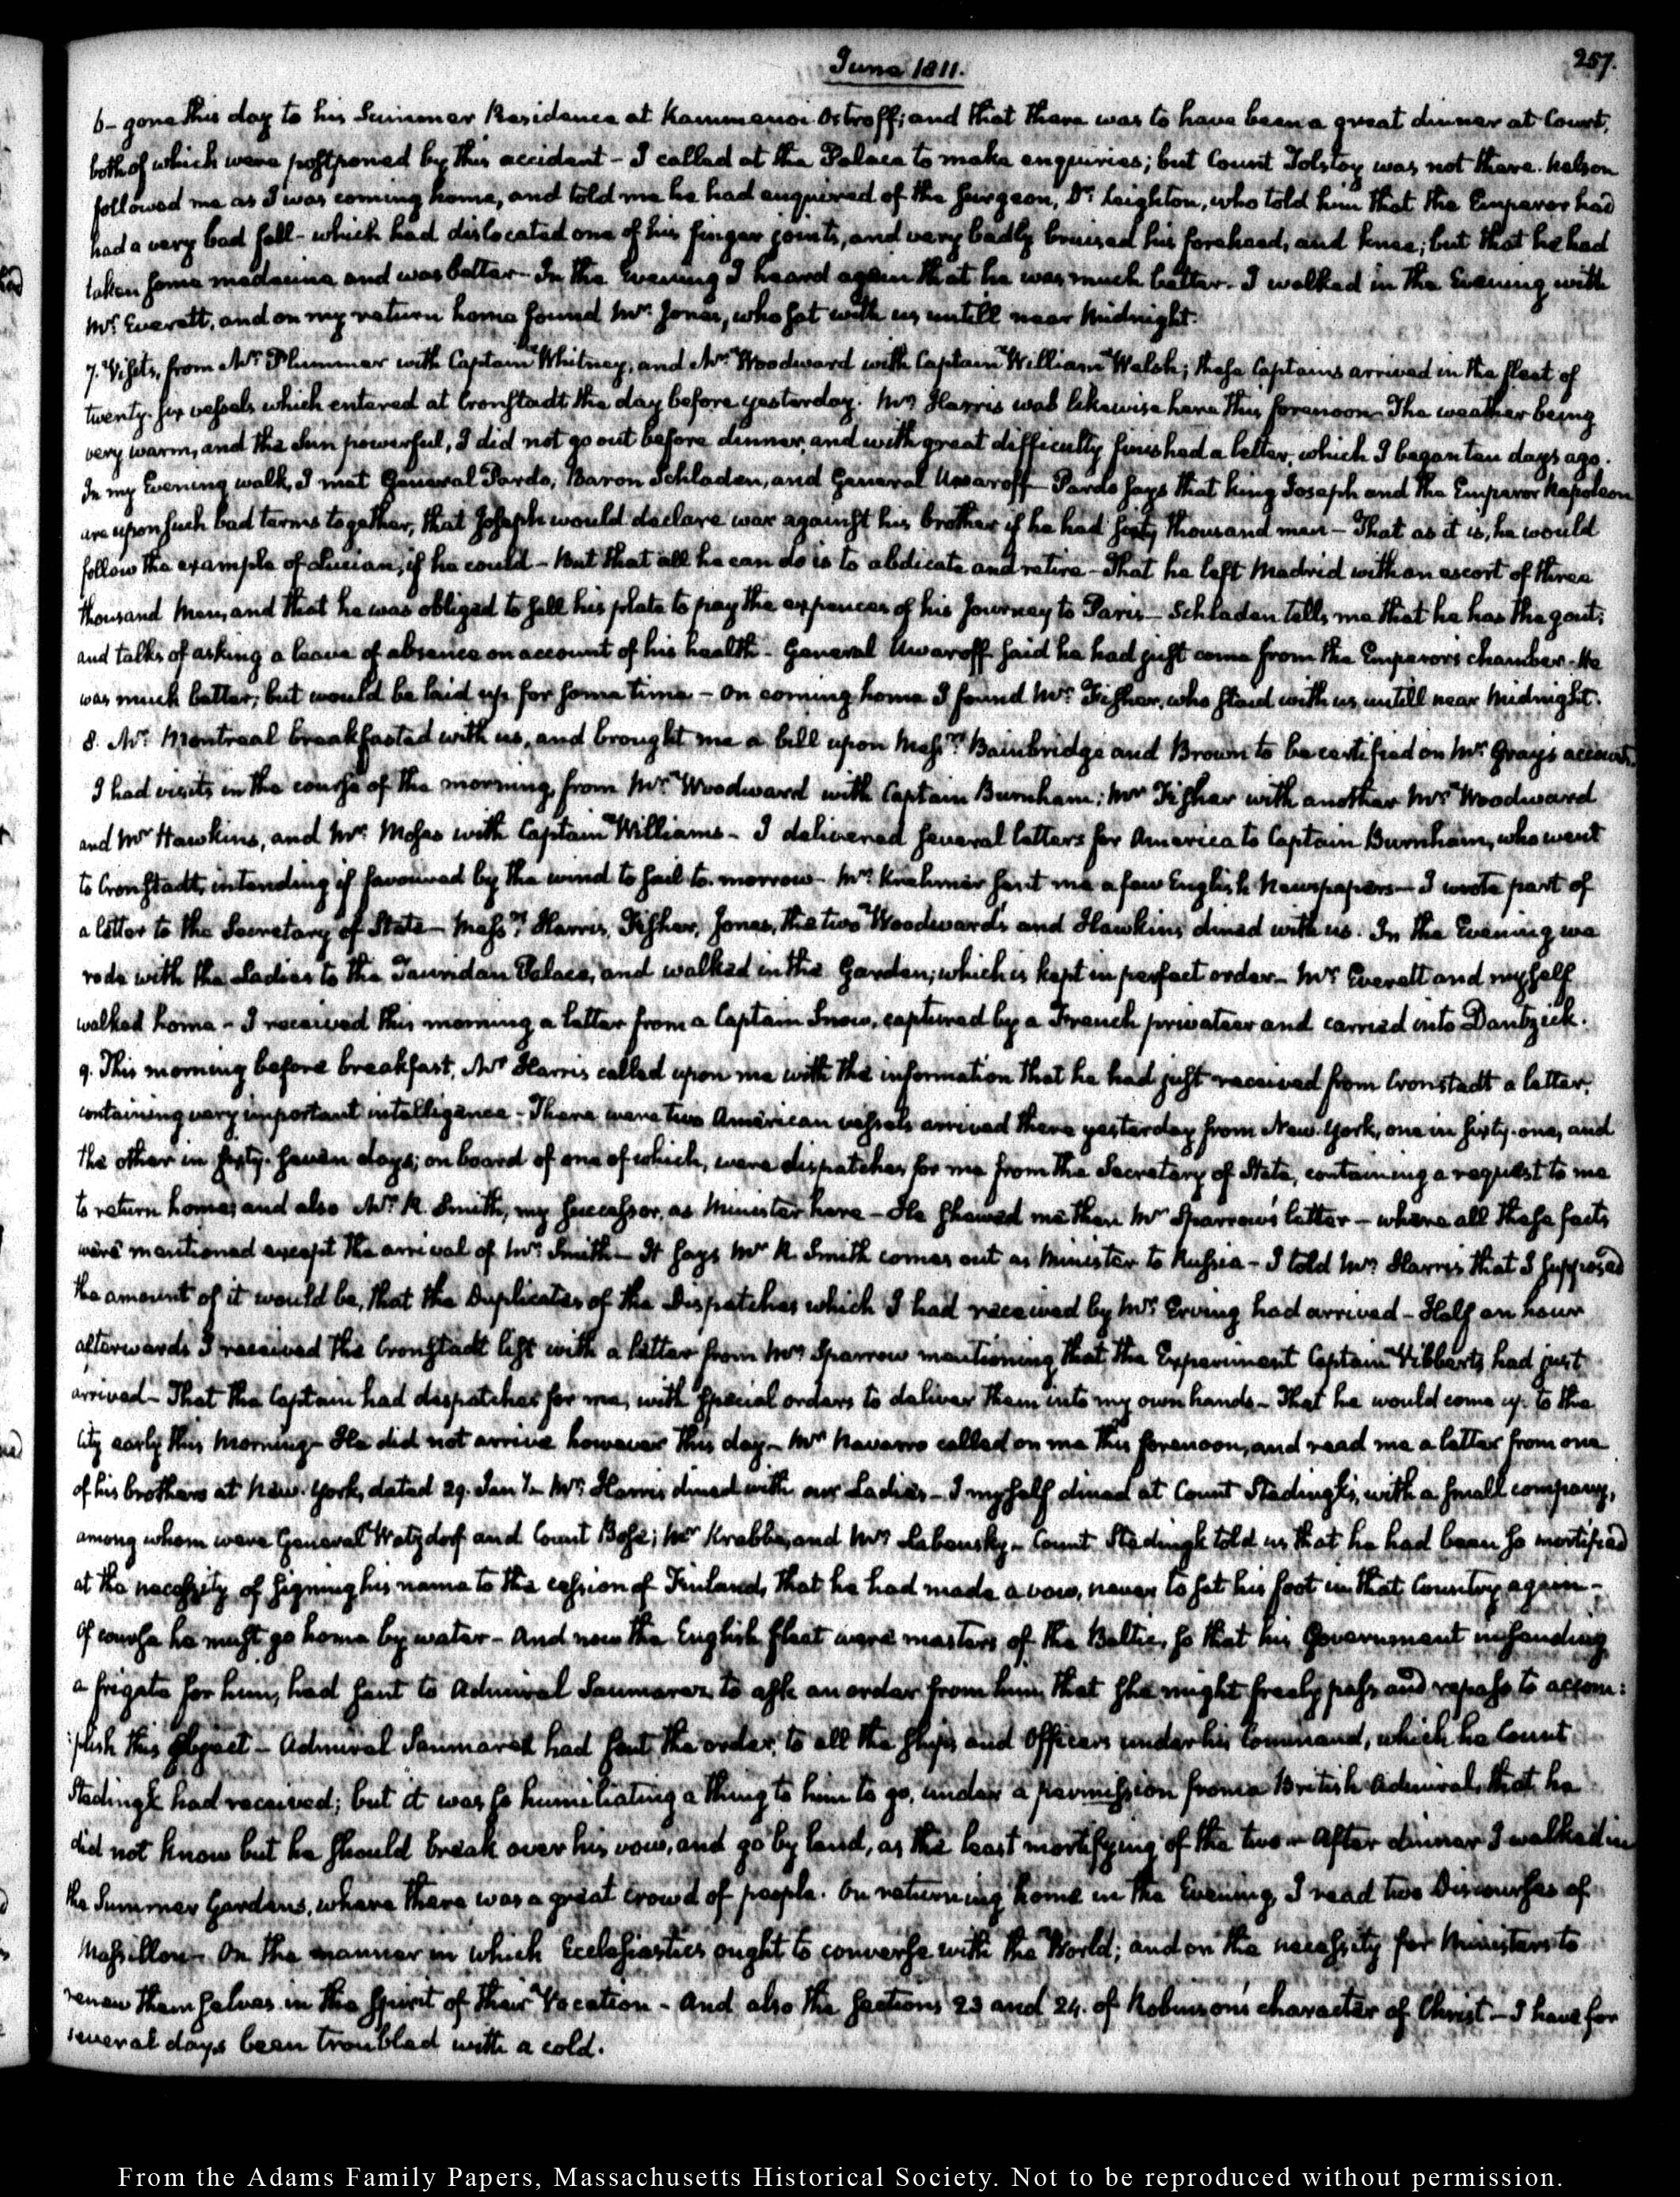 June 1811.
257.
6- gone this day to his Summer Residence at Kammenoi Ostroff; and that there was to have been a great dinner at Court,
both of which were postponed by this accident - I called at the Palace to make enquiries; but Count Tolstoy was not there. Nelson
followed me as I was coming home, and told me he had enquired of the Surgeon, Dr. Leighton, who told him that the Emperor had
had a very bad fall - which had dislocated one of his finger joints, and very badly bruised his forehead, and knee; but that he had
taken some medicine and was better - In the Evening I heard again that he was much better - I walked in the Evening with
Mr. Everett, and on my return home found Mr. Jones, who sat with us untill near Midnight.
7. Visits, from Mr. Plummer with Captain Whitney, and Mr. Woodward with Captain William Welsh; these Captains arrived in the fleet of
twenty-six vessels which entered at Cronstadt the day before yesterday. Mr. Harris was likewise here this forenoon - The weather being
very warm, and the Sun powerful, I did not go out before dinner, and with great difficulty finished a letter, which I began ten days ago.
In my Evening walk, I met General Pardo, Baron Schladen, and General Uwaroff - Pardo says that king Joseph and the Emperor Napoleon
are upon such bad terms together, that Joseph would declare war against his brother if he had sixty thousand men - That as it is, he would
follow the example of Lucian, if he could - But that all he can do is to abdicate and retire - That he left Madrid with an escort of three
thousand Men, and that he was obliged to sell his plate to pay the expences of his Journey to Paris - Schladen tells me that he has the gout;
and talks of asking a leave of absence on account of his health - General Uwaroff said he had just come from the Emperor's chamber - He
was much better, but would be laid up for some time - On coming home I found Mr. Fisher, who staid with us untill near Midnight.
8. Mr. Montreal breakfasted with us, and brought me a bill upon Messrs. Bainbridge and Brown to be certified on Mr. Gray's account.
I had visits in the course of the morning, from Mr. Woodward with Captain Burnham; Mr Fisher with another Mr. Woodward
and Mr Hawkins, and Mr. Moses with Captain Williams - I delivered several letters for America to Captain Burnham, who went
to Cronstadt, intending if favoured by the wind to sail to-morrow - Mr. Krehmer sent me a few English Newspapers - I wrote part of
a letter to the Secretary of State - Messrs. Harris, Fisher, Jones, the two Woodward's and Hawkins dined with us. In the Evening we
rode with the Ladies to the Tauridan Palace, and walked in the Garden; which is kept in perfect order - Mr. Everett and myself
walked home - I received this morning a letter from a Captain Snow, captured by a French privateer and carried into Dantzick.
9. This morning before breakfast, Mr Harris called upon me with the information that he had just received from Cronstadt a letter,
containing very important intelligence - There were two American vessels arrived there yesterday from New-York, one in sixty-one, and
the other in sixty-seven days; on board of one of which, were dispatches for me from the Secretary of State, containing a request to me
to return home; and also Mr. R. Smith, my Successor, as Minister here - He shewed me then Mr Sparrow's letter - where all these facts
were mentioned except the arrival of Mr. Smith - It says Mr R. Smith comes out as Minister to Russia - I told Mr. Harris that I supposed
the amount of it would be, that the Duplicates of the Dispatches which I had received by Mr. Erving had arrived - Half an hour
afterwards I received the Cronstadt list with a letter from Mr. Sparrow mentioning that the Experiment Captain Vibberts had just
arrived - That the Captain had despatches for me, with special orders to deliver them into my own hands - That he would come up to the
City early this Morning - He did not arrive however this day - Mr Navarro called on me this forenoon, and read me a letter from one
of his brothers at New-York, dated 29. Jany. - Mr. Harris dined with our Ladies - I myself dined at Count Stedingk's, with a small company,
among whom were General Watzdorf and Count Bose; Mr Krabbe, and Mr. Labensky - Count Stedingk told us that he had been so mortified
at the necessity of signing his name to the cession of Finland, that he had made a vow, never to set his foot in that Country again -
Of course he must go home by water - And now the English fleet were masters of the Baltic, so that his Government in sending
a frigate for him, had sent to Admiral Saumarez to ask an order from him, that she might freely pass and repass to accom:
:plish this object - Admiral Saumarez had sent the order, to all the ships and Officers under his Command, which he Count
Stedingk had received; but it was so humiliating a thing to him to go, under a permission from a British Admiral, that he
did not know but he should break over his vow, and go by land, as the least mortifying of the two - After dinner I walked in
the Summer Gardens, where there was a great crowd of people. On returning home in the Evening, I read two Discourses of
Massillon - On the manner in which Ecclesiastics ought to converse with the World; and on the necessity for Ministers to
renew themselves in the spirit of their Vocation - And also the sections 23 and 24. of Robinson's character of Christ - I have for
several days been troubled with a cold.
From the Adams Family Papers, Massachusetts Historical Society. Not to be reproduced without permission.